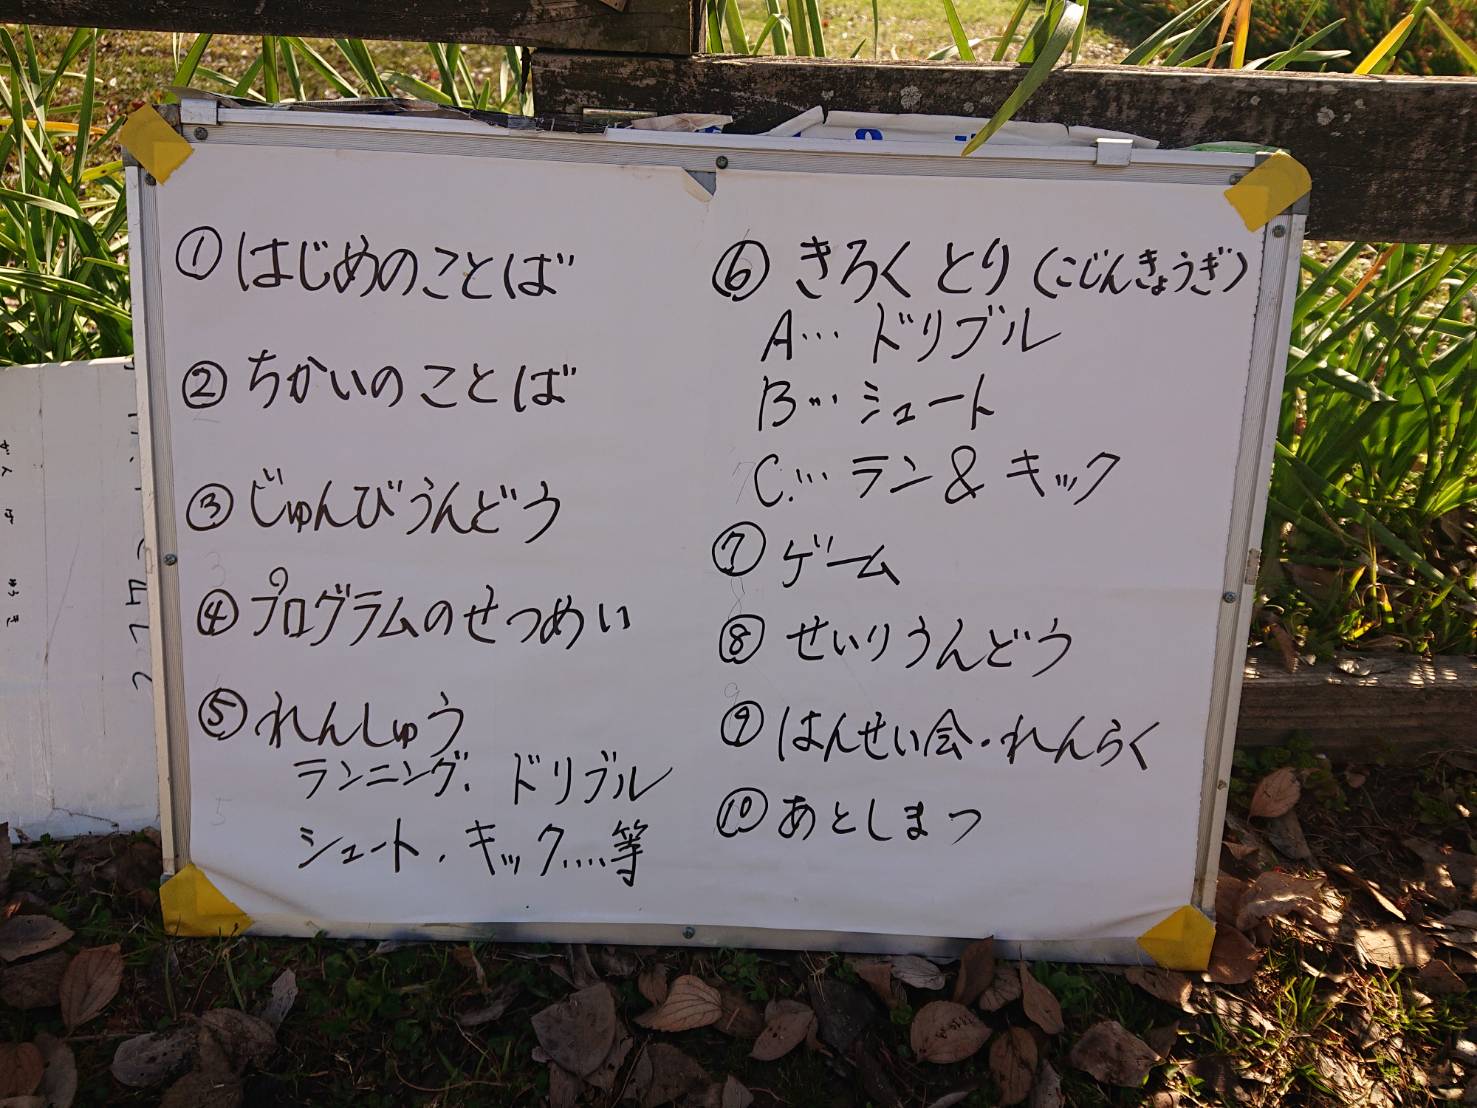 ①はじめのことば
②ちかいのことば
③じゅんびうんどう
④プログラムのせつめい
⑤れんしゅう
ランニング.ドリブル
シュート.キック....等
⑥きろくとり(こじんきょうぎ)
A…ドリブル
B…シュート
C.…ラン&キック
⑦ゲーム
⑧せいりうんどう
⑨はんせい会・れんらく
⑩あとしまつ